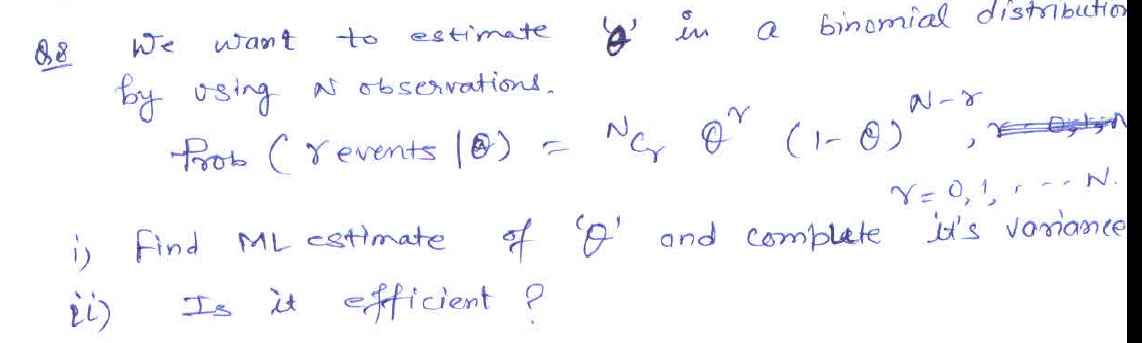 Q8 We want to estimate 'θ' in a binomial distribution
by using N observations.
Prob (r events |θ) = ᴺCᵣ θʳ (1-θ)ᴺ⁻ʳ,
r=0, 1, , --- N.
i) Find ML estimate of 'θ' and complete it's variance
ii) Is it efficient ?